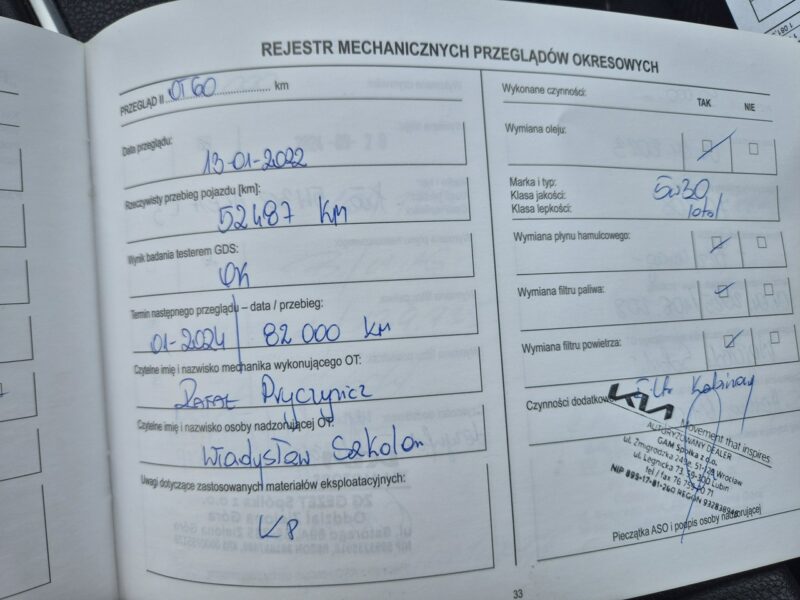 REJESTR MECHANICZNYCH PRZEGLĄDÓW OKRESOWYCH
PRZEGLĄD II OT60 km
Data przeglądu:
13-01-2022
Rzeczywisty przebieg pojazdu [km]:
52487 KM
Wynik badania testerem GDS:
OK
Termin następnego przeglądu – data / przebieg:
01-2024 82 000 KM
Czytelne imię i nazwisko mechanika wykonującego OT:
Rafał
Czytelne imię i nazwisko osoby nadzorującej OT:
Władysław Szkolan
Uwagi dotyczące zastosowanych materiałów eksploatacyjnych:
Wykonane czynności:
TAK NIE
Wymiana oleju:
Marka i typ: 5W30
Klasa jakości: total
Klasa lepkości:
Wymiana płynu hamulcowego:
Wymiana filtru paliwa:
Wymiana filtru powietrza:
Czynności dodatkowe: Filtr Kabinowy
KIA Movement that inspires
AUTORYZOWANY DEALER
GAM Spółka z o.o.
ul. Żmigrodzka 249e, 51-129 Wrocław
ul. Legnicka 73, 59-300 Lubin
tel / fax 76
NIP 895-17-81-260 REGON
Pieczątka ASO i podpis osoby nadzorującej
33